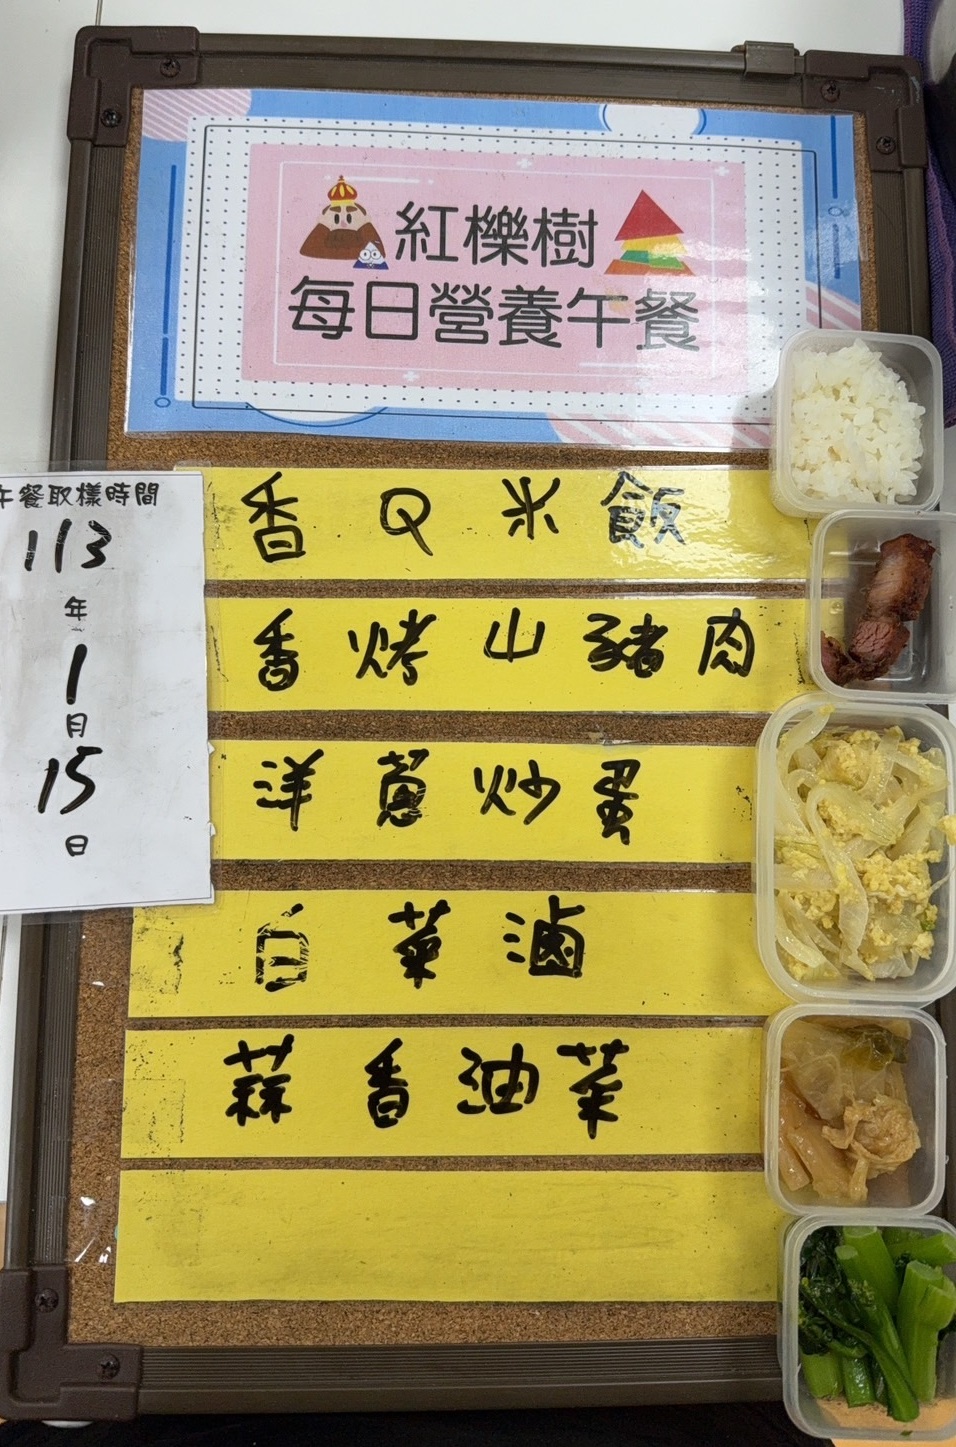 紅櫟樹
每日營養午餐
午餐取樣時間
113
年
1
月
15
日
香Q米飯
香烤山豬肉
洋蔥炒蛋
白菜滷
蒜香油菜